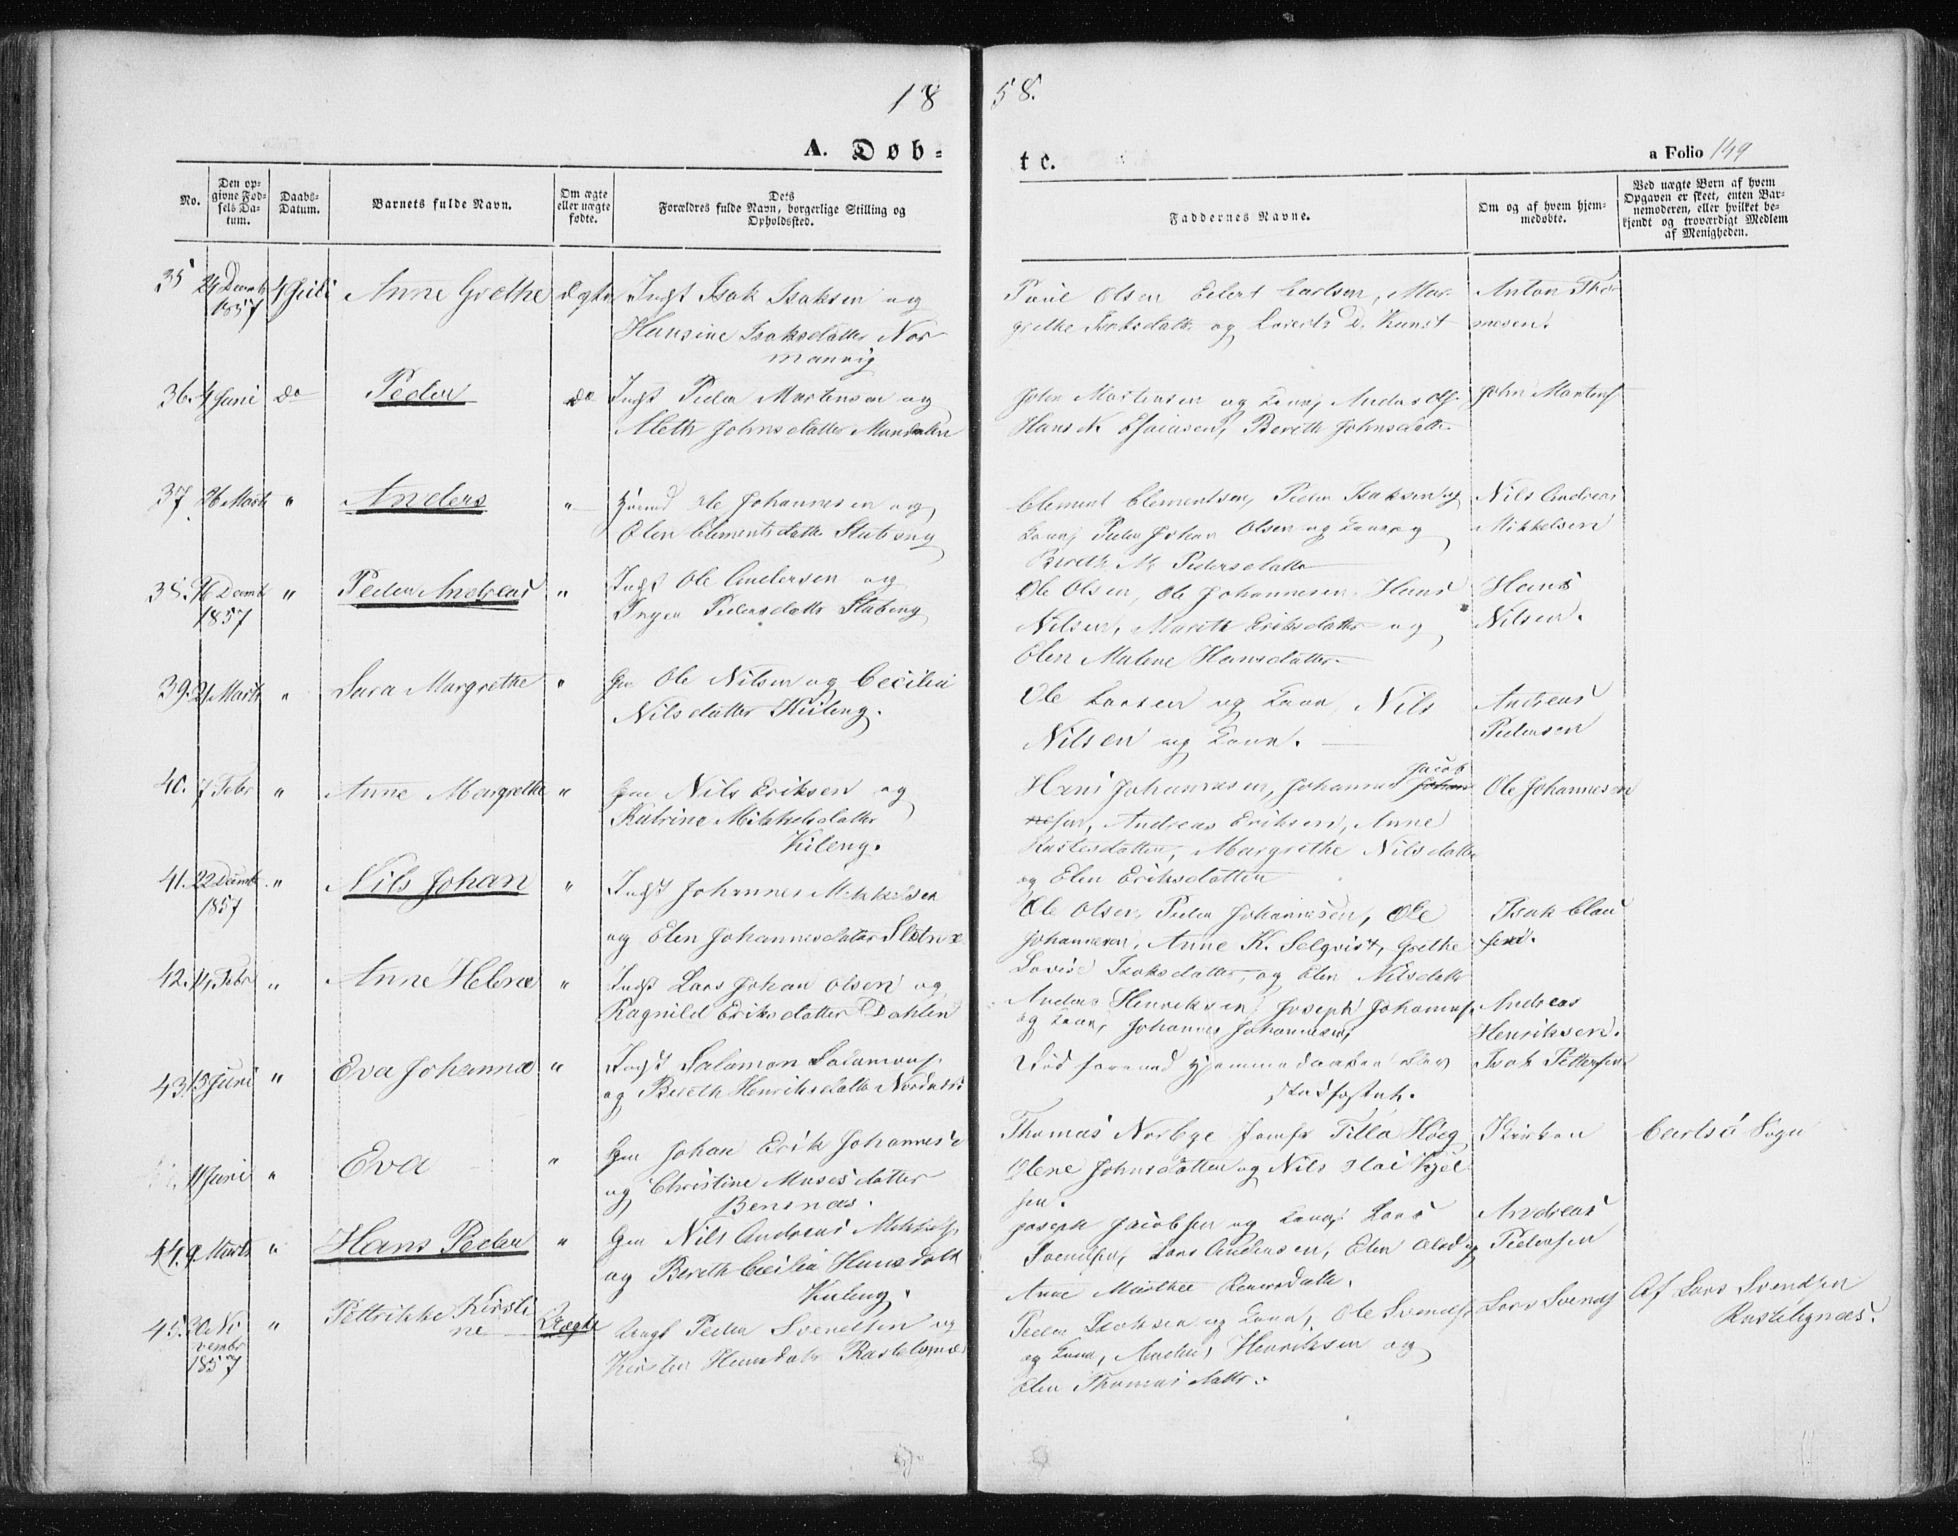 18
58.
A. Døb-
te.
a Folio 149
No.
Den op-
givne Fød-
sels Da-
tum.
Daabs-
Datum.
Barnets fulde Navn.
Om ægte
eller uægte
fødte.
Dets
Forældres fulde Navn, borgerlige Stilling og
Opholdssted.
Faddernes Navne.
Om og af hvem hjem-
medøbte.
Ved uægte Børn af hvem
Opgaven er skeet, enten Bar-
nemoderen, eller hvilket be-
kjendt og troværdigt Medlem
af Menigheden.
35 24 Decemb 1857 4 Juli Anne Grethe ægte
Indst Isak Isaksen og
Hansine Isaksdatter Nor
manvig
Paul Olsen Eilert Carlsen, Mar-
grethe Isaksdatt og
Anton Tho
mesen.
36. 4 Juni do Peder do
Indst Peder Mortensen og
Meth Johnsdatter Mandalen
John Mortensen og Kone, Anders Ols.
Hans N. Esaiasen, Berith Johnsdatt
John Mortens
37 26 Marts " Anders "
Ole Johannesen og
Elen Clementsdatter
Clement Clementsen, Peder Isaksen og
Kone, Peder Johan Olsen og Kone og
Bereth M. Pedersdatter
Nils Andreas
Mikkelsen
38. 16 Decmb 1857 " Peder Andreas "
Indst Ole Andersen og
Inger Pedersdatter
Ole Olsen, Ole Johannesen, Hans
Nilsen, Marith Eriksdatter og
Elen Malene Hansdatter
Hans
Nilsen.
39. 21 Marts " Sara Margrethe "
Gm Ole Nilsen og Cecilia
Nilsdatter Kileng.
Ole Larsen og Kone Nils
Nilsen og Kone.
Andreas
Pedersen
40. 7 Febr " Anne Margrethe "
Gm Nils Eriksen og
Katrine Mikkelsdatter
Kileng.
Hans Johannesen, Johannes Jacob
sen, Andreas Eriksen, Anne
Margrethe Nilsdatter
og Elen Eriksdatter
Ole Johannesen
41. 22 Decmb 1857 " Nils Johan "
Indst Johannes Mikkelsen
og Elen Johannesdatter
Ole Olsen, Peder Johannesen, Ole
Johannesen, Anne K. Selqvist, Grethe
Lovise Isaksdatter, og Elen Nilsdatt
Isak Clau
sen.
42. 14 Febr " Anne Helene "
Indst Lars Johan Olsen og
Ragnild Eriksdatter Dahlen
Anders Henriksen, Joseph Johannes.
og Kone, Johannes Johannesen,
Andreas
Henriksen.
43. 15 Juni " Eva Johanna "
Indst Salamon Salamons.
og Bereth Henriksdatt Nordnes
Død førend Hjemmedaaben blev
stadfæstet.
Isak Pettersen
11 Juni " Eva "
Gm Johan Erik Johannes
og Christine Mosesdatter
Bensnæs.
Thomas Norbye Jomfr Tilla Høeg
Olene Johnsdatter og Nils Kjel
sen.
Kirken
Carlsø Sogn
44. 9 Marts " Hans Peder "
Gm Nils Andreas Mikkels.
og Bereth Cecilia Hansdatt
Kileng.
Joseph Jacobsen og Kone, Lars
Svendsen, Lars Andersen, Elen Olsd og
Anne Marthea
Andreas
Pedersen
45. 20 No
vembr
1857 " Petrikke Kirsti
ne Uægte
Ungk Peder Svendsen og
Kirsten Hansdatt
Peder Isaksen og Kone, Ole Svends.
og Kone, Anders Henriksen og
Elen Thomasdatter.
Lars Svends
Af Lars Svendsen